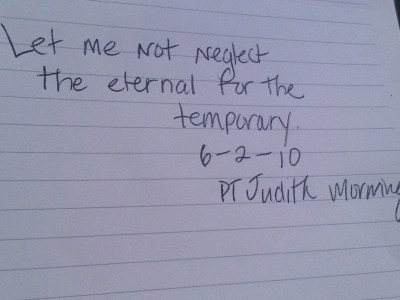 Let me not neglect
the eternal for the
temporary.
6-2-10
PT Judith Morning